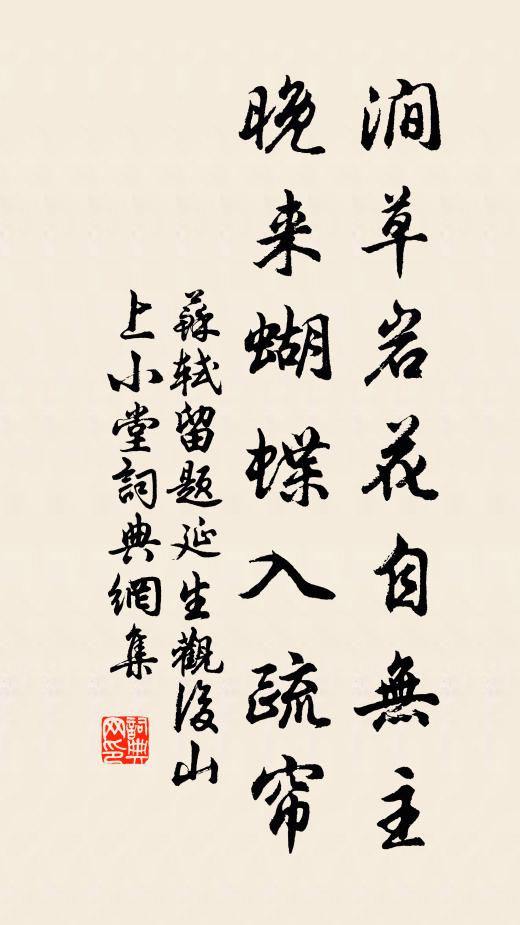 澗草岩花自無主
晚来蝴蝶入疏帘
蘇軾留題延生觀後山
上小堂詞典網集
詞典
网印